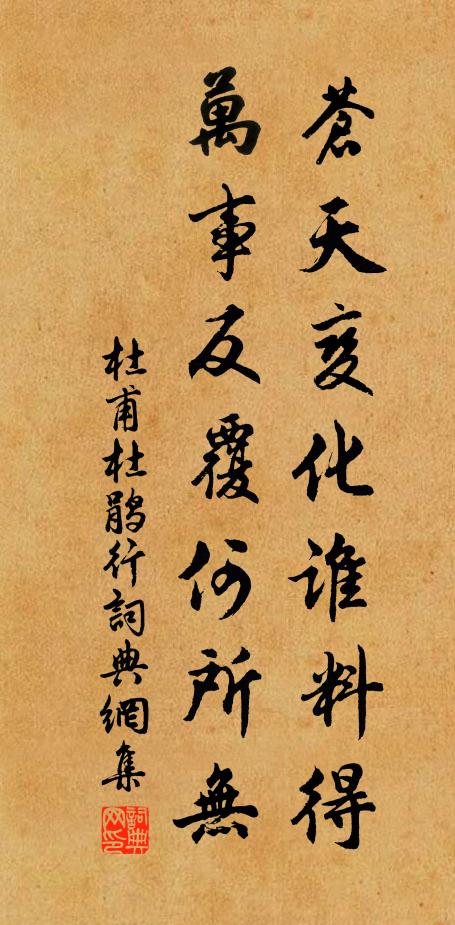 蒼天变化誰料得
萬事反覆何所無
杜甫杜鹃行詞典網集
詞典
网印